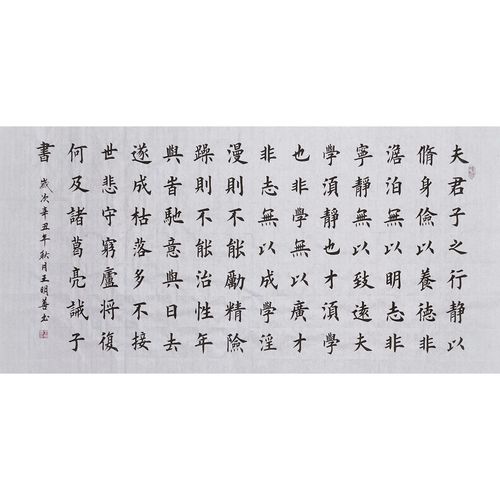 夫君子之行靜以
脩身儉以養德非
澹泊無以明志非
寧靜無以致遠夫
學湏靜也才湏學
也非學無以廣才
非志無以成學淫
漫則不能勵精險
躁則不能治性年
與旹馳意與日去
遂成枯落多不接
世悲守窮廬將復
何及諸葛亮誡子
書
歲次辛丑年秋月王明善书